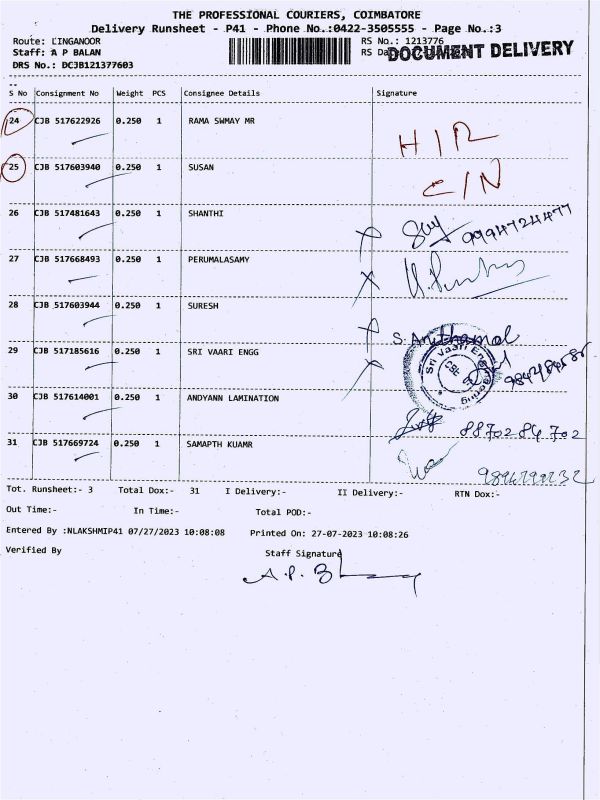 THE PROFESSIONAL COURIERS, COIMBATORE
Delivery Runsheet - P41 - Phone No.:0422-3505555 - Page No.:3
Route: LINGANOOR RS No.: 1213776
Staff: A P BALAN RS Da DOCUMENT DELIVERY
DRS No.: DCJB121377603
S No Consignment No Weight PCS Consignee Details Signature
24 CJB 517622926 0.250 1 RAMA SWMAY MR
H I R
25 CJB 517603940 0.250 1 SUSAN
C/N
26 CJB 517481643 0.250 1 SHANTHI 9994724477
27 CJB 517668493 0.250 1 PERUMALASAMY
28 CJB 517603944 0.250 1 SURESH
29 CJB 517185616 0.250 1 SRI VAARI ENGG Sri Vaari Engineering
30 CJB 517614001 0.250 1 ANDYANN LAMINATION
8870284702
31 CJB 517669724 0.250 1 SAMAPTH KUAMR
Tot. Runsheet:- 3 Total Dox:- 31 I Delivery:- II Delivery:- RTN Dox:-
Out Time:- In Time:- Total POD:-
Entered By :NLAKSHMIP41 07/27/2023 10:08:08 Printed On: 27-07-2023 10:08:26
Verified By Staff Signature